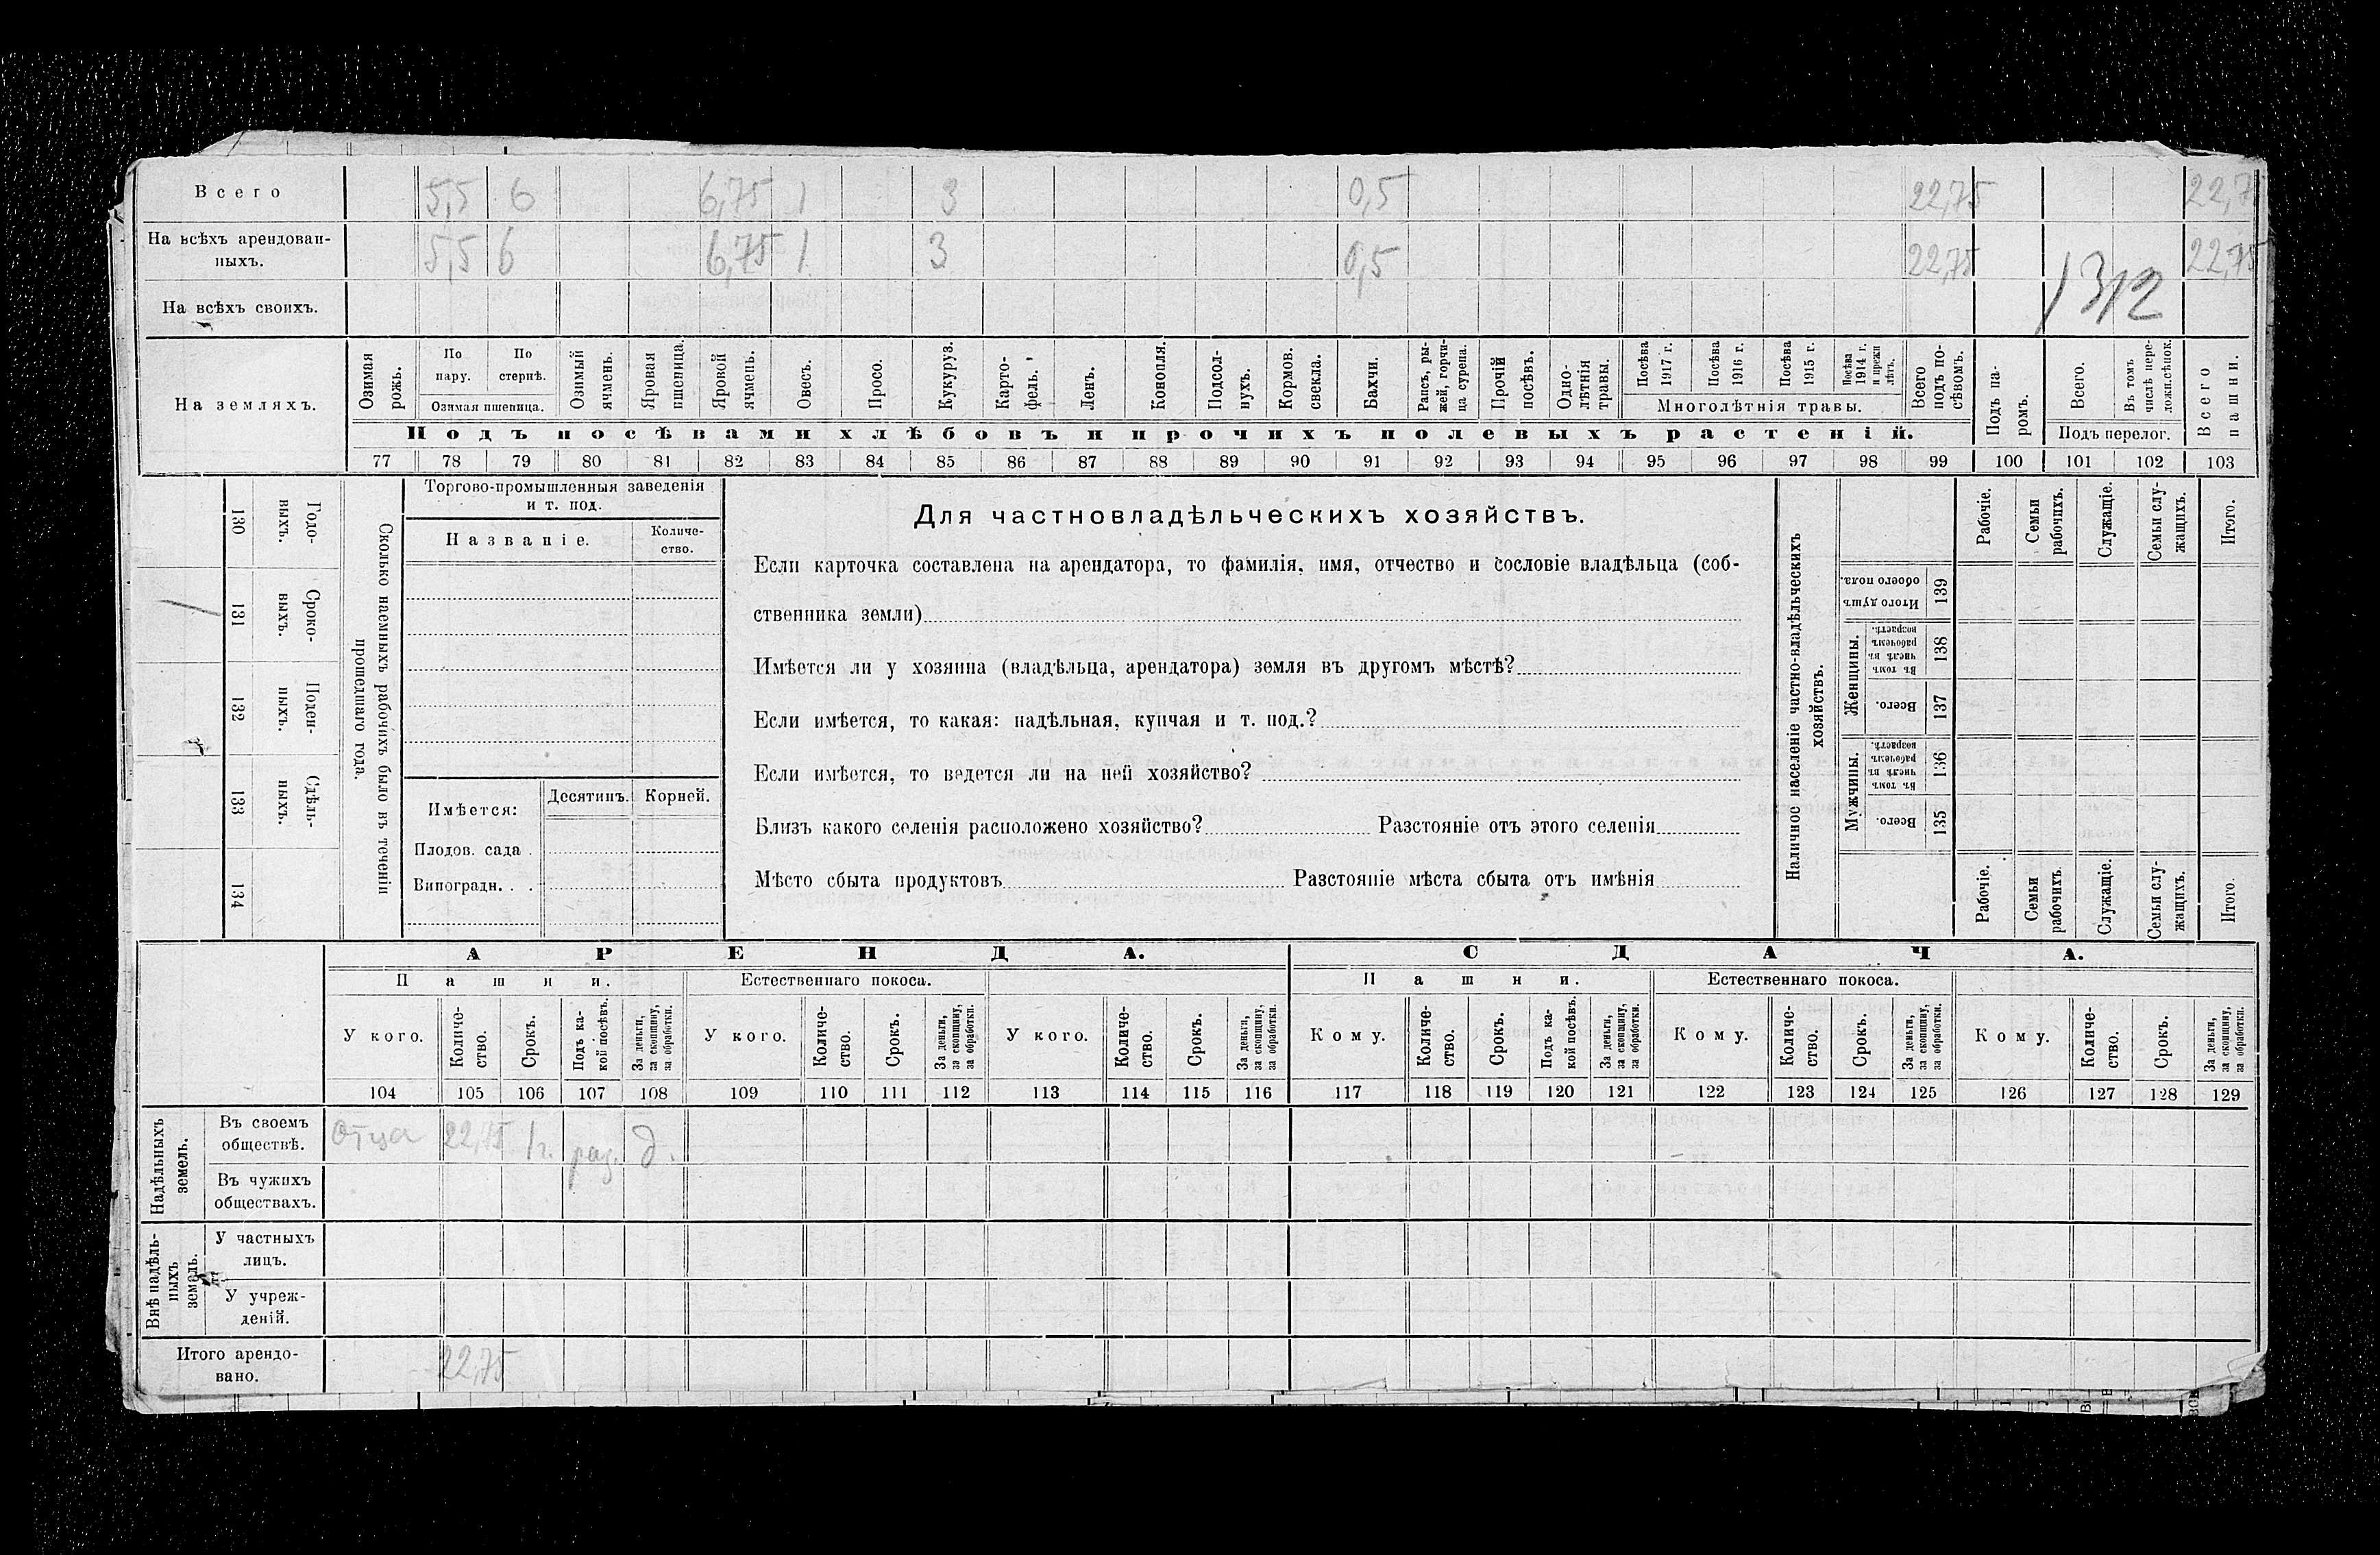 Всего 5,5 6 6,75 1 3 0,5 22,75 22,75
На всѣхъ арендован-
ныхъ. 5,5 6 6,75 1 3 0,5 22,75 22,75
1312
На всѣхъ своихъ.
На земляхъ.
Озимая рожь.
По пару.
По стернѣ.
Озимая пшеница.
Озимый ячмень.
Яровая пшеница.
Яровой ячмень.
Овесъ.
Просо.
Кукуруз.
Карто-
фель.
Ленъ.
Конопля.
Подсол-
нухъ.
Кормов. свекла.
Бахчи.
Рапсъ, ры-
жей, горчи-
ца сурепа.
Прочій посѣвъ.
Одно-
лѣтнія
травы.
Посѣва 1917 г.
Посѣва 1916 г.
Посѣва 1915 г.
Посѣва 1914 г. и прежн лѣтъ.
Многолѣтнія травы.
Всего подъ по-
сѣвомъ.
Подъ па-
ромъ.
Всего.
Въ томъ числѣ пере-
ложн.сѣнок.
Подъ перелог.
Всего пашни.
Подъ посѣвами хлѣбовъ и прочихъ полевыхъ растеній.
77 78 79 80 81 82 83 84 85 86 87 88 89 90 91 92 93 94 95 96 97 98 99 100 101 102 103
Годо-
выхъ.
130
Сроко-
выхъ.
131
Поден-
ныхъ.
132
Сдѣль-
ныхъ.
133
134
Сколько наемныхъ рабочихъ было въ теченіи
прошедшаго года.
Торгово-промышленныя заведенія
и т. под.
Названіе.
Количе-
ство.
Имѣется:
Десятинъ.
Корней.
Плодов. сада .
Виноградн. . .
Для частновладѣльческихъ хозяйствъ.
Если карточка составлена на арендатора, то фамилія, имя, отчество и сословіе владѣльца (соб-
ственника земли)
Имѣется ли у хозяина (владѣльца, арендатора) земля въ другомъ мѣстѣ?
Если имѣется, то какая: надѣльная, купчая и т. под.?
Если имѣется, то ведется ли на ней хозяйство?
Близъ какого селенія расположено хозяйство? Разстояніе отъ этого селенія
Мѣсто сбыта продуктовъ Разстояніе мѣста сбыта отъ имѣнія
Наличное населеніе частно-владѣльческихъ
хозяйствъ.
Рабочіе.
Семьи рабочихъ.
Служащіе.
Семьи слу-
жащихъ.
Итого.
Итого душъ обоего пола.
139
Женщины.
Въ томъ числѣ въ рабочемъ возрастѣ.
138
Всего.
137
Мужчины.
Въ томъ числѣ въ рабочемъ возрастѣ.
136
Всего.
135
Рабочіе.
Семьи рабочихъ.
Служащіе.
Семьи слу-
жащихъ.
Итого.
АРЕНДА. СДАЧА.
Пашни. Естественнаго покоса. Пашни. Естественнаго покоса.
У кого.
Количе-
ство.
Срокъ.
Подъ ка-
кой посѣвъ.
За деньги,
за скопщину,
за обработки.
У кого.
Количе-
ство.
Срокъ.
За деньги,
за скопщину,
за обработки.
У кого.
Количе-
ство.
Срокъ.
За деньги,
за скопщину,
за обработки.
Кому.
Количе-
ство.
Срокъ.
Подъ ка-
кой посѣвъ.
За деньги,
за скопщину,
за обработки.
Кому.
Количе-
ство.
Срокъ.
За деньги,
за скопщину,
за обработки.
Кому.
Количе-
ство.
Срокъ.
За деньги,
за скопщину,
за обработки.
104 105 106 107 108 109 110 111 112 113 114 115 116 117 118 119 120 121 122 123 124 125 126 127 128 129
Надѣльныхъ
земель.
Въ своемъ
обществѣ. Отца 22,75 1 г. раз. д.
Въ чужихъ
обществахъ.
Внѣ надѣль-
ныхъ
земель.
У частныхъ
лицъ.
У учреж-
деній.
Итого арендо-
вано. 22,75